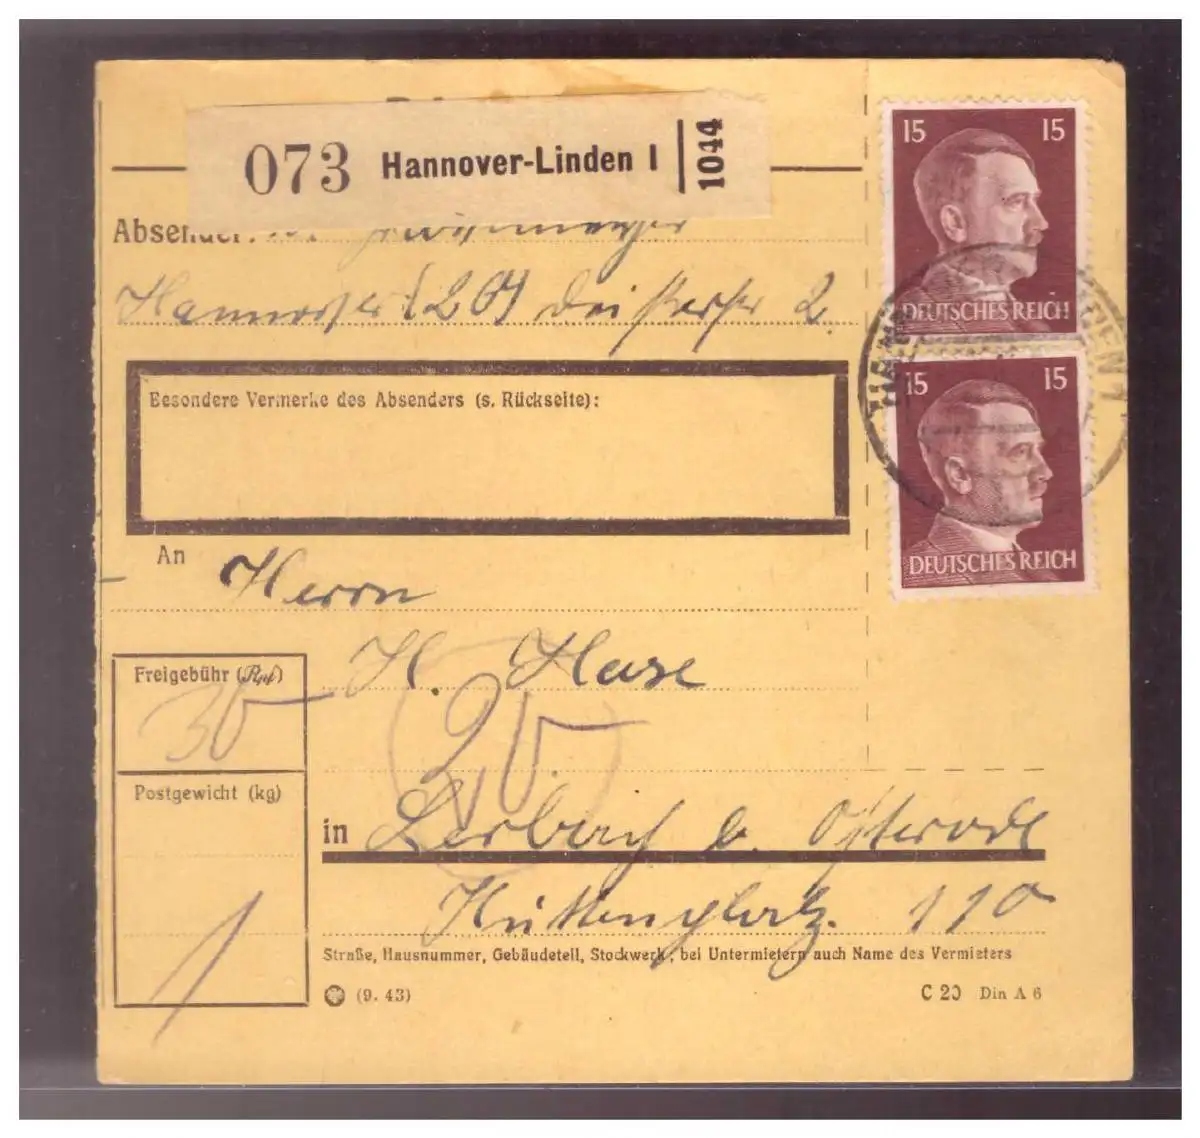 073 Hannover-Linden 1 1044
Absender:
Hannover (20)
2
15 15
DEUTSCHES REICH
15 15
DEUTSCHES REICH
Besondere Vermerke des Absenders (s. Rückseite):
An Herrn
H. Hase
Freigebühr (Rpf)
30
20
Postgewicht (kg)
1
in Lerbach b. Osterode
Hüttenplatz. 110
Straße, Hausnummer, Gebäudeteil, Stockwerk; bei Untermietern auch Name des Vermieters
(9. 43)
C 20 Din A 6